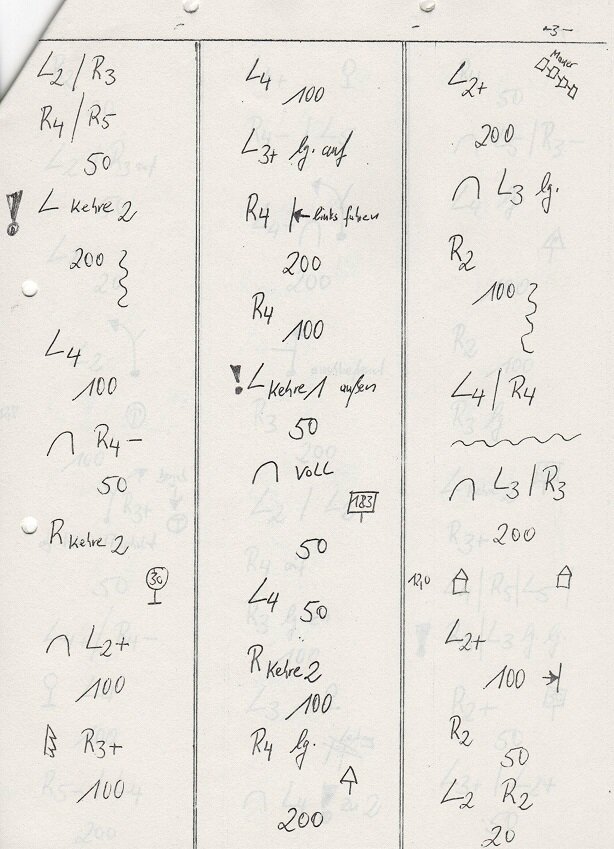 -3-
L2/R3
R4/R5
50
! L Kehre 2
200
L4
100
R4-
50
R Kehre 2
30
L2+
100
R3+
100
L4
100
L3+ lg. auf
R4 links fahren
200
R4
100
! L Kehre 1 außen
50
voll
183
50
L4
50
R Kehre 2
100
R4 lg.
200
Mauer
L2+
200
L3 lg.
R2
100
L4/R4
L3/R3
200
12,0
L2+
100
R2
50
L2 R2
20